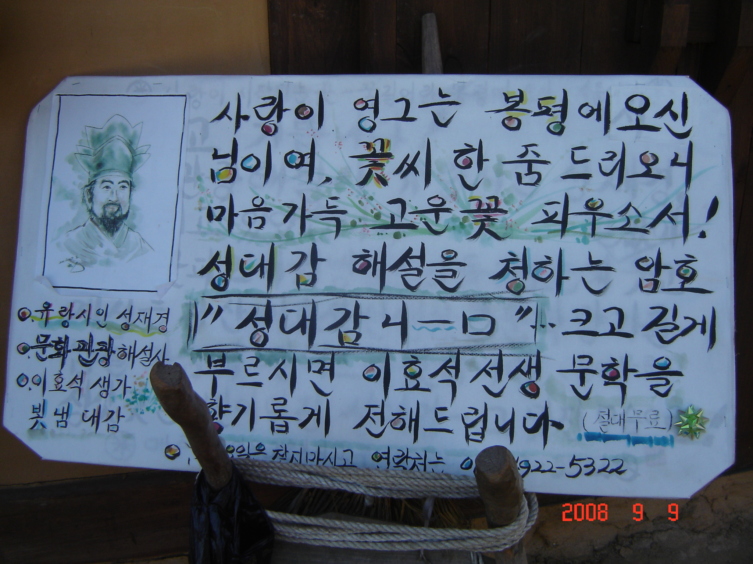 사랑이 영그는 봉평에오신
님이여, 꽃씨 한 줌 드리오니
마음가득 고운꽃 피우소서!
성대감 해설을 청하는 암호
"성대감니ㅡㅁ"... 크고 길게
부르시면 이효석선생 문학을
향기롭게 전해드립니다 (절대무료)
유랑시인 성재경
문화관광해설사
이효석 생가
빛냄 대감
연락처는 922-5322
2008 9 9